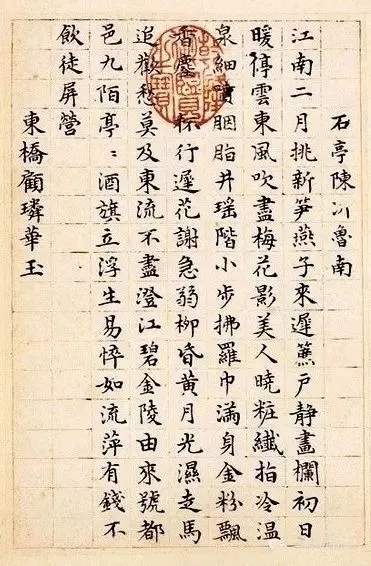 石亭陳沂魯南
江南二月挑新笋燕子來遲簾戶靜畫欄初日
暖停雲東風吹盡梅花影美人曉粧纖指冷温
泉細胭脂井瑤階小步拂羅巾滿身金粉飄
香塵杯行遲花謝急弱柳昏黃月光濕走馬
追歡愁莫及東流不盡澄江碧金陵由來號都
邑九陌亭〻酒旗立浮生易悴如流萍有錢不
飲徒屏營
東橋顧璘華玉